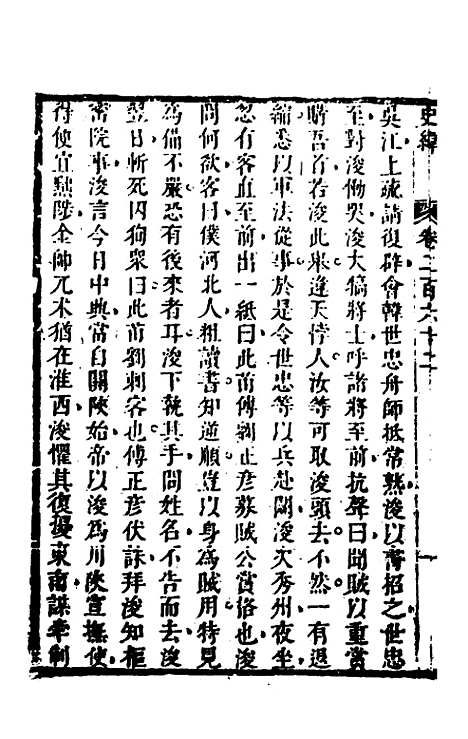 史緯 卷二百六十二 一
吳江上疏請復辟會韓世忠舟師抵常熟浚以書招之世忠
至對浚慟哭浚大犒將士呼諸將至前抗聲曰聞賊以重賞
購吾首若浚此舉逢天悖人汝等可取浚頭去不然一有退
縮悉以軍法從事於是令世忠等以兵赴闕浚次秀州夜坐
忽有客直至前出一紙曰此苗傅劉正彥募賊公賞格也浚
問何欲客曰僕河北人粗讀書知逆順豈以身為賊用特見
為備不嚴恐有後來者耳浚下執其手問姓名不告而去浚
翌日斬死囚狥衆曰此苗劉刺客也傅正彥伏誅拜浚知樞
密院事浚言今日中興當自關陝始帝以浚為川陝宣撫使
得便宜黜陟金帥兀术猶在淮西浚懼其復擾東南謀牽制